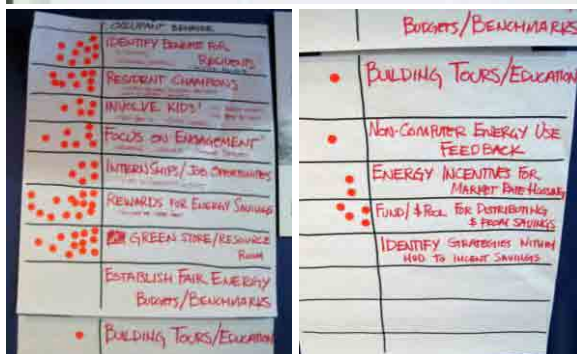 OCCUPANT BEHAVIOR
IDENTIFY BENEFITS FOR
RESIDENTS
RESIDENT CHAMPIONS
INVOLVE KIDS!
FOCUS ON ENGAGEMENT
INTERNSHIPS/JOB OPPORTUNITIES
REWARDS FOR ENERGY SAVINGS
GREEN STORE/RESOURCE
ROOM
ESTABLISH FAIR ENERGY
BUDGETS/BENCHMARKS
BUILDING TOURS/EDUCATION
BUDGETS/BENCHMARKS
BUILDING TOURS/EDUCATION
NON-COMPUTER ENERGY USE
FEEDBACK
ENERGY INCENTIVES FOR
MARKET RATE HOUSING
FUND/$ POOL FOR DISTRIBUTING
$ FROM SAVINGS
IDENTIFY STRATEGIES WITHIN
HUD TO INCENT SAVINGS